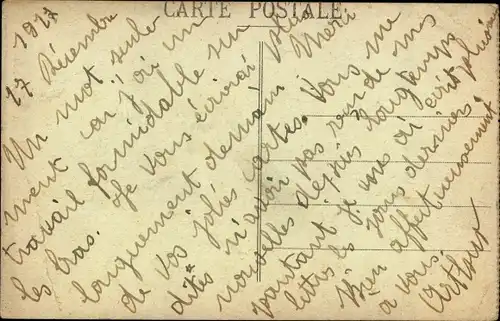 CARTE POSTALE
17 Décembre 1927
Un mot seule
ment car j'ai un
travail formidable sur
les bras. Je vous écrirai plus
longuement demain. Merci
de vos jolies cartes. Vous me
dites n'avoir pas reçu de mes
nouvelles depuis longtemps
pourtant je vous ai écrit plusieurs
lettres les jours derniers.
Bien affectueusement
à vous.
Arthur